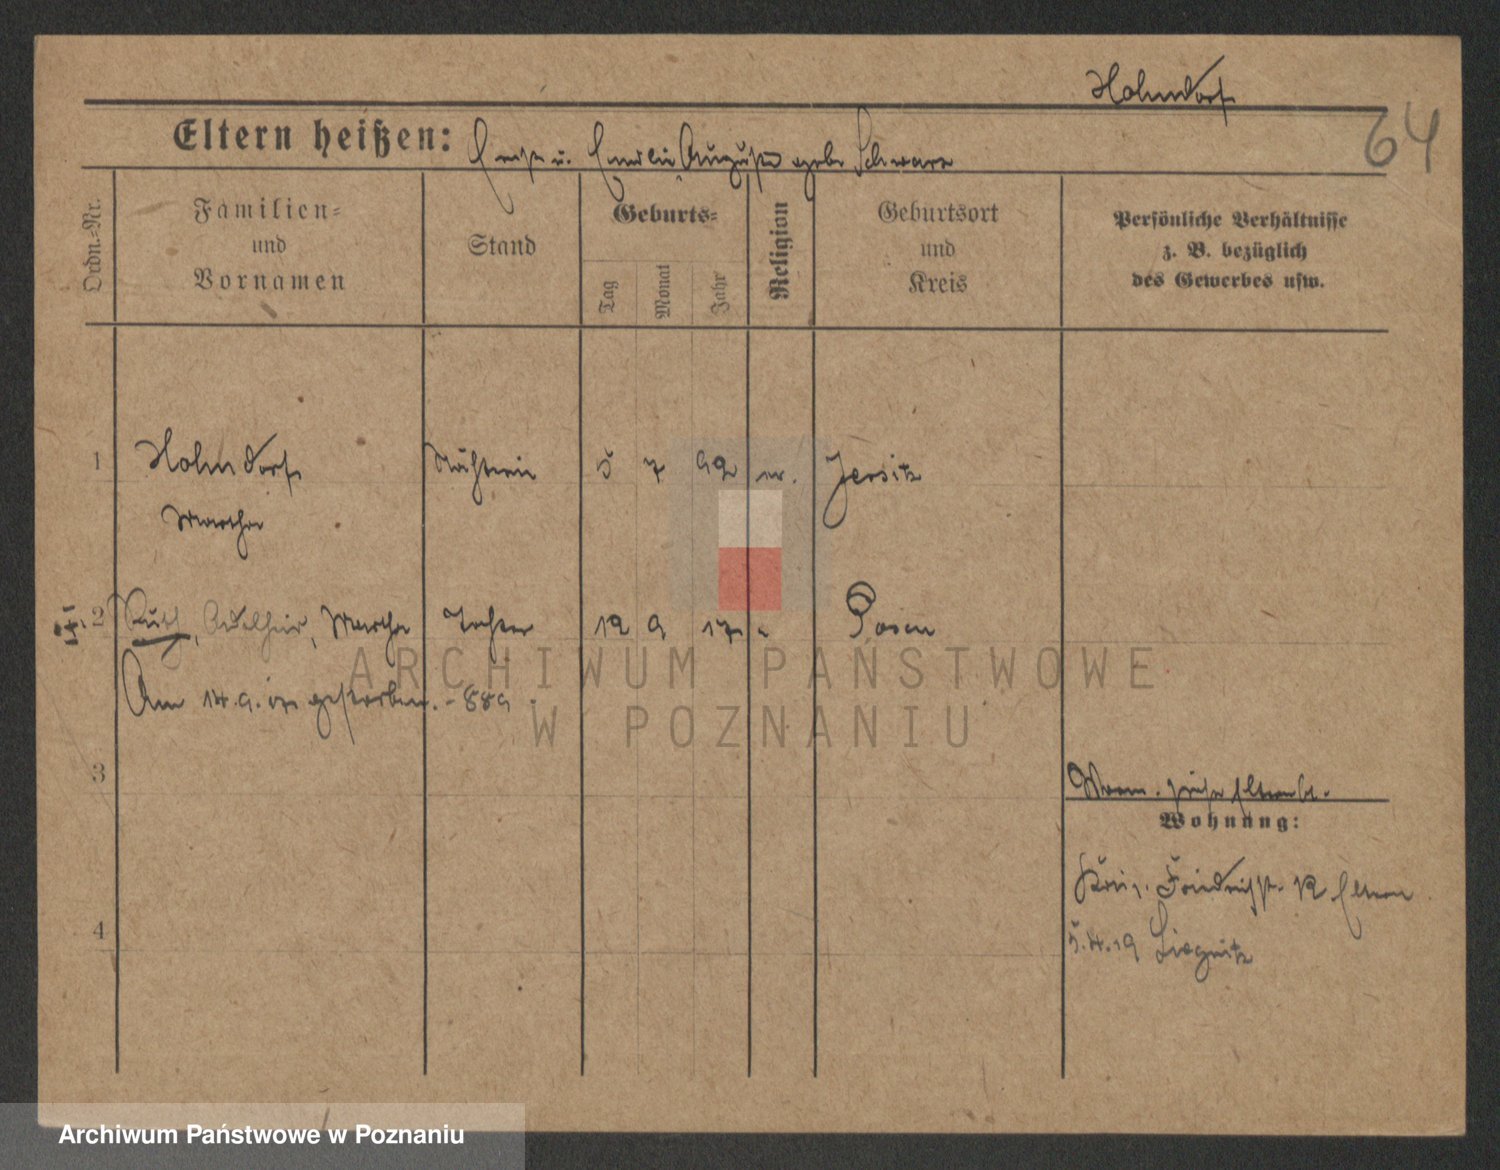 Hohndorf
64
Eltern heißen: Ernst u. Emilie Auguste geb. Schwarz
Ordn.-Nr.
Familien-
und
Vornamen
Stand
Geburts-
Tag
Monat
Jahr
Religion
Geburtsort
und
Kreis
Persönliche Verhältnisse
z. B. bezüglich
des Gewerbes usw.
1 Hohndorf Näherin 5 7 92 ev. Jersitz
Martha
2 Ruth, Adelheid, Martha Tochter 12 9 17 Posen
Am 14.9.17 gestorben. - 889
3
Wohnung:
Friedrichstr. 12 Eltern
4
5.4.19 Liegnitz
ARCHIWUM PAŃSTWOWE
W POZNANIU
Archiwum Państwowe w Poznaniu